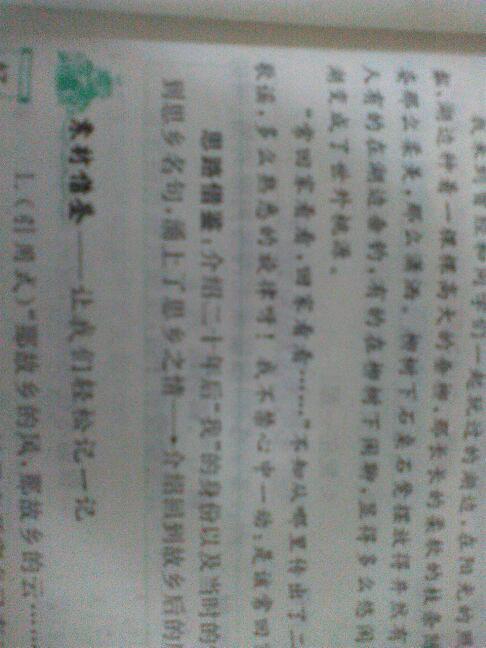 我来到曾经和同学们一起玩过的湖边,在阳光的照
湖边种着一棵棵高大的垂柳,那长长的柔软的枝条随
那么柔美,那么潇洒。柳树下石桌石凳摆放得井然有
人有的在湖边垂钓,有的在柳树下闲聊,显得多么悠闲
湖变成了世外桃源。
“常回家看看,回家看看……”不知从哪里传出了二
歌谣,多么熟悉的旋律呀!我不禁心中一动:是该常回
思路借鉴:介绍二十年后“我”的身份以及当时的
到思乡名句,涌上了思乡之情——→介绍回到故乡后的
素材借鉴——让我们轻松记一记
1.(引用式)“那故乡的风,那故乡的云……